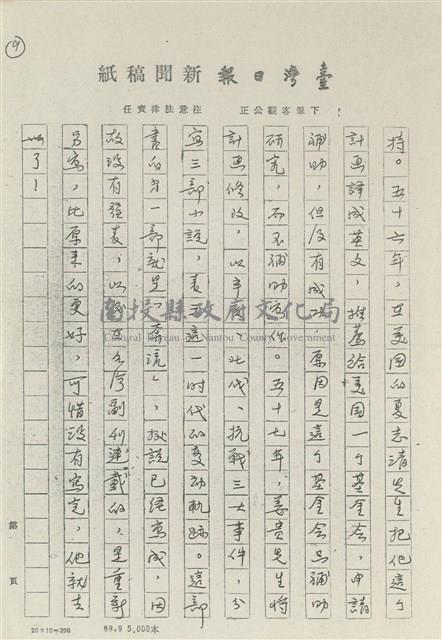 (9)
臺灣日報新聞稿紙
下筆客觀公正　注意法律責任
持。五十六年，在美国的夏志清先生把他這个
計画譯成英文，推薦給美国一个基金会，申請
補助，但没有成功，原因是這个基金会只補助
研究，而不補助寫作。五十七年，姜貴先生將
計画修改，以辛亥、北伐、抗戰三大事件，分
寫三部小說，表達這一時代的变动軌跡。這部
書的另一部就是「奔流」，据說已経寫成，因
故没有發表，以
今副刊連載的，是重新
另寫，比原来的更好，可惜没有寫完，他就去
了！
南投縣政府文化局
Cultural Bureau of Nantou County Government
第　頁
20×10=200
69.9 5,000本